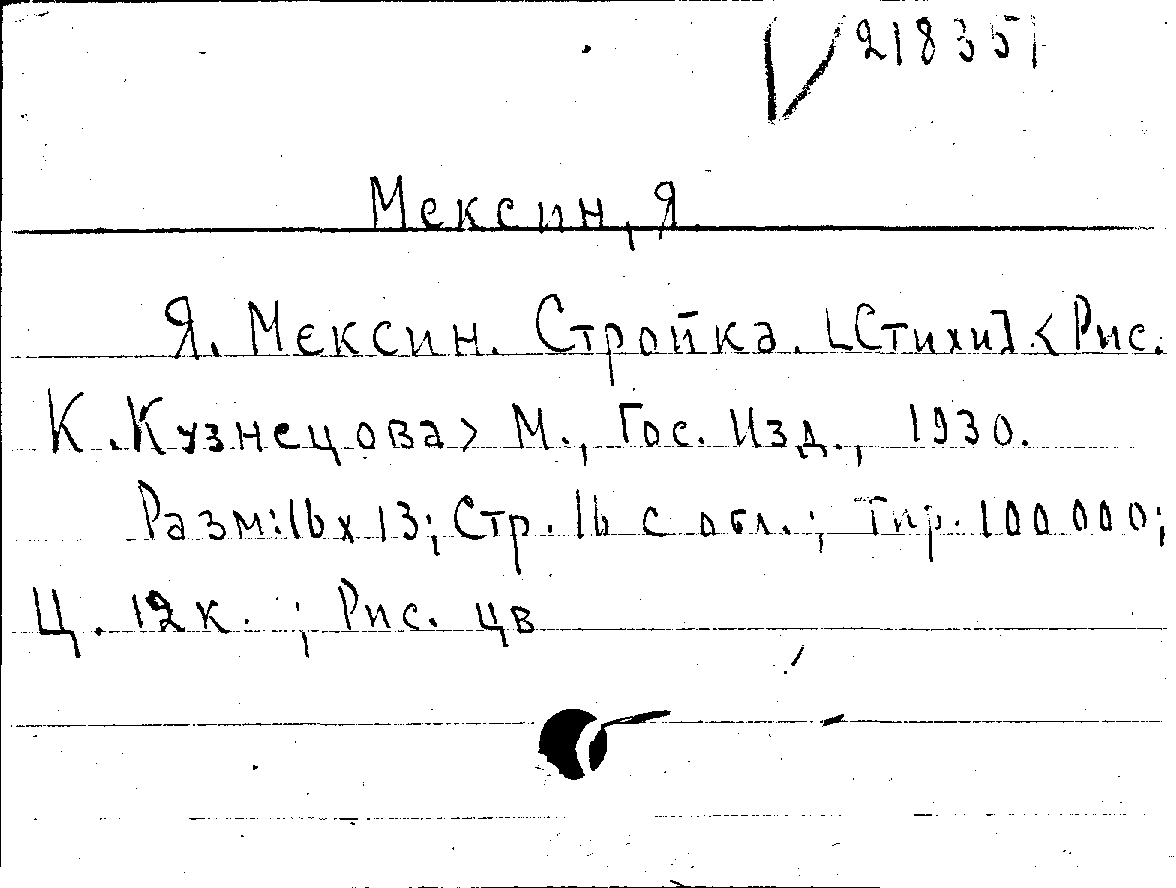 V 218351
Мексин, Я
Я. Мексин. Стройка. [Стихи] <Рис.
К. Кузнецова> М., Гос. Изд., 1930.
Разм: 16 х 13; Стр. 16 с обл.; Тир. 100 000;
Ц. 12 к. ; Рис. цв